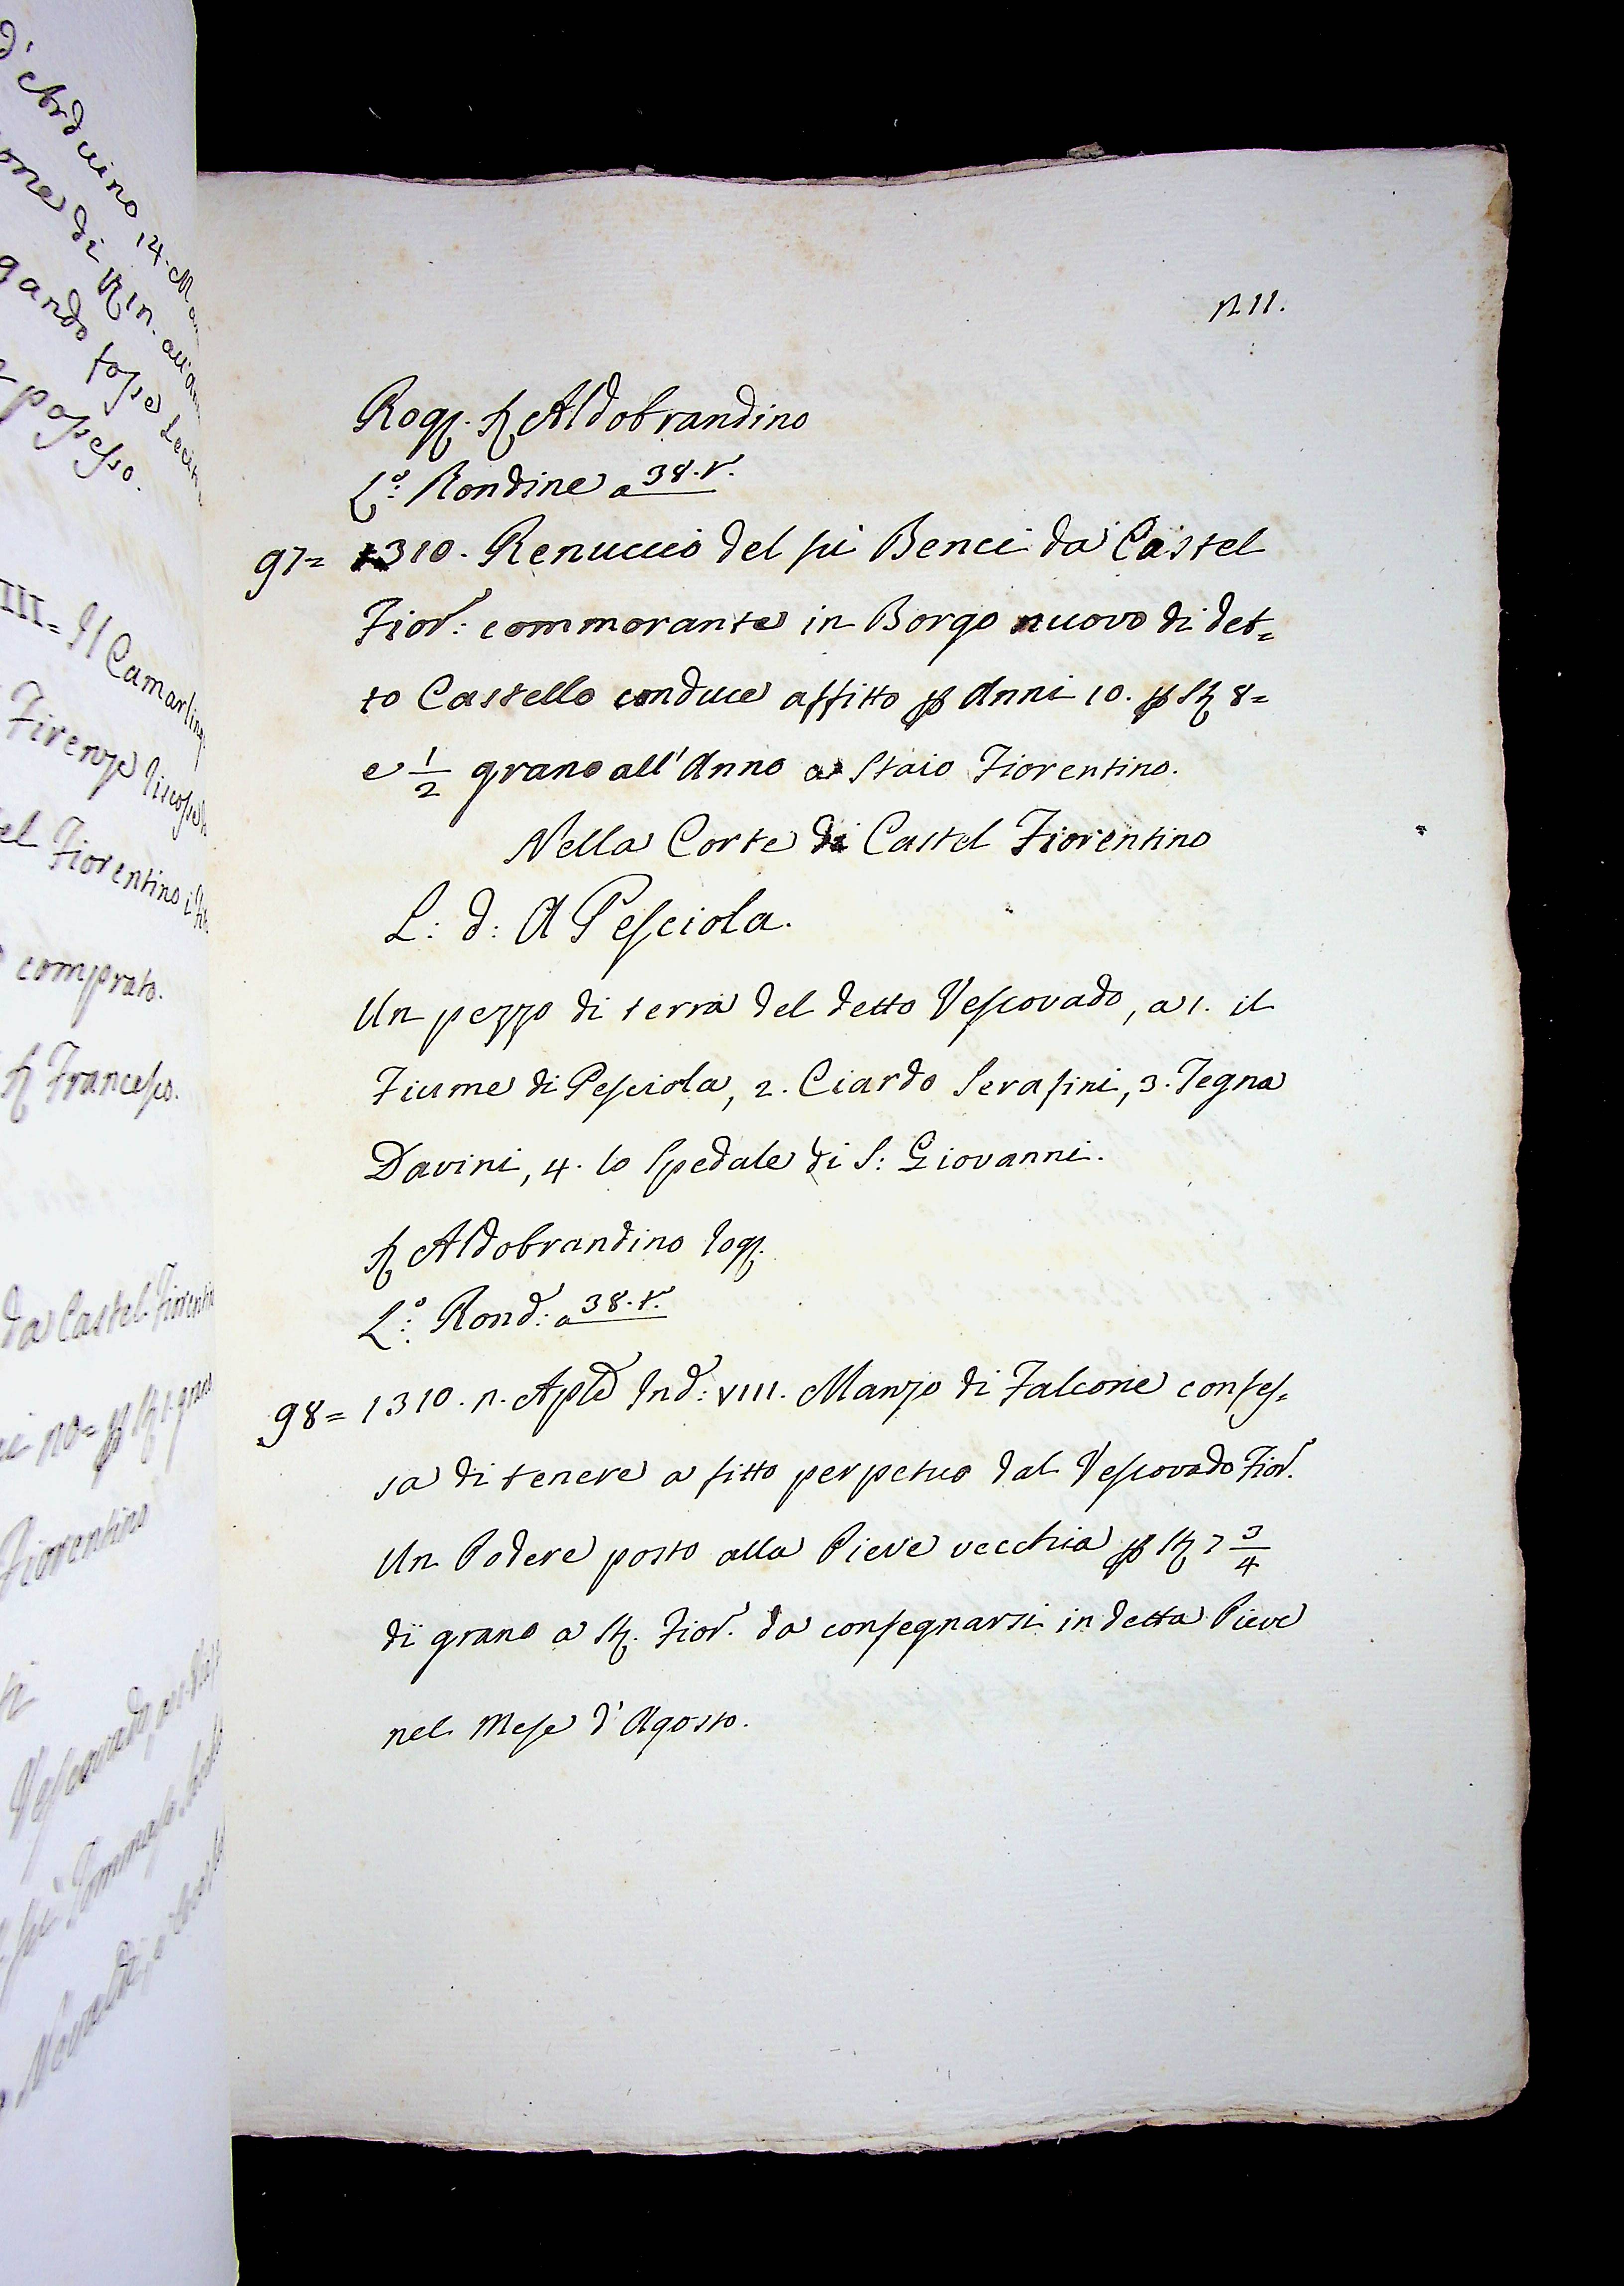 n 11.
Rog. S. Aldobrandino
L.o: Rondine a 38. r.
97= 1310. Renuccio del fù Benci da Castel
Fior: commorante in Borgo nuovo di det=
to Castello conduce affitto p Anni 10. p St 8=
e 1/2 grano all'Anno a Staio Fiorentino.
Nella Corte di Castel Fiorentino
L: d: A Pesciola.
Un pezzo di terra del detto Vescovado, a 1. il
Fiume di Pesciola, 2. Ciardo Serafini, 3. Tegna
Davini, 4. lo Spedale di S: Giovanni.
S. Aldobrandino rog.
L.o: Rond: a 38. r.
98= 1310. n. Aple Ind: VIII. Manzo di Falcone confes=
sa di tenere a fitto perpetuo dal Vescovado Fior.
Un Podere posto alla Pieve vecchia p St 7 3/4
di grano a St. Fior. da consegnarsi in detta Pieve
nel Mese d'Agosto.
d'Arduino 14.
di Rin.
possesso.
III= Il Camarling
Firenze
el Fiorentino
comprato.
S. Francesco.
da Castel Fiorentin
Fiorentino
Vescovado
fù Tommaso